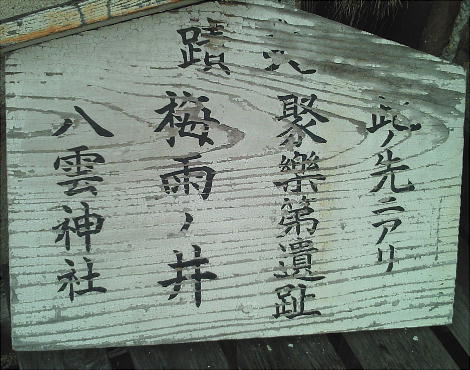 史蹟
此ノ先ニアリ
聚樂第遺趾
梅雨ノ井
八雲神社